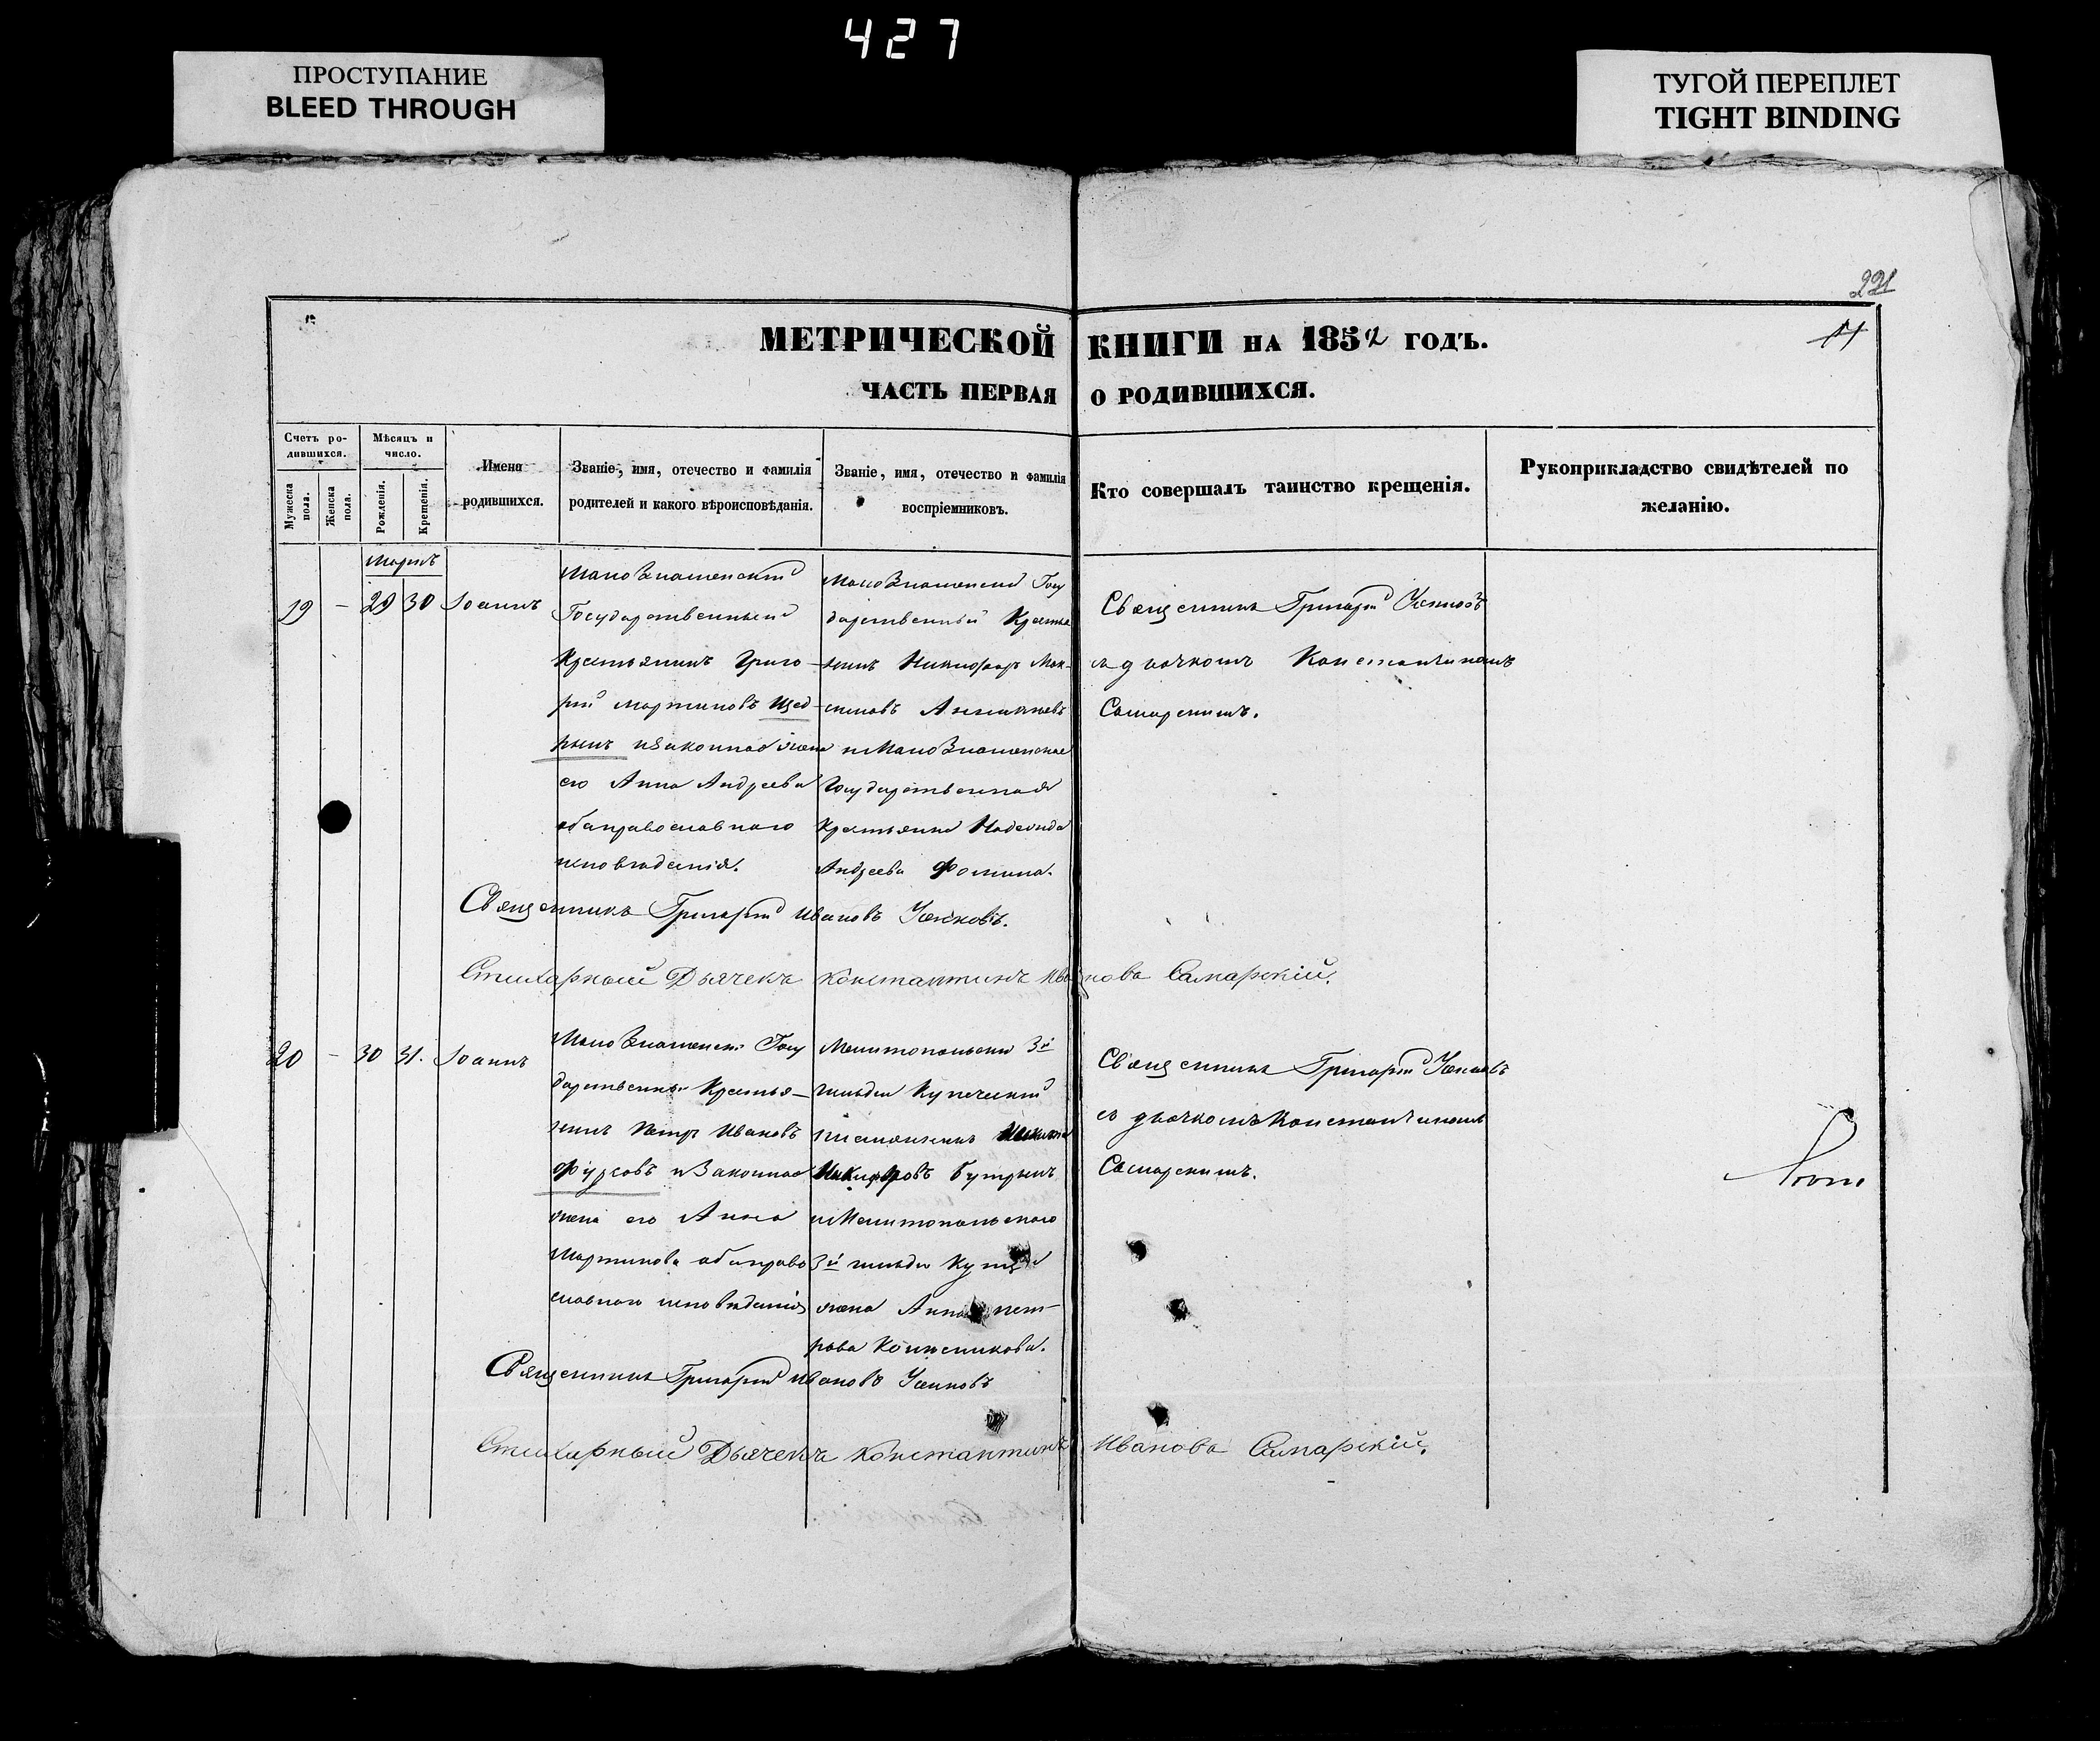 427
ПРОСТУПАНИЕ
BLEED THROUGH
ТУГОЙ ПЕРЕПЛЕТ
TIGHT BINDING
221
11
МЕТРИЧЕСКОЙ КНИГИ НА 1852 ГОДЪ.
ЧАСТЬ ПЕРВАЯ О РОДИВШИХСЯ.
Счетъ ро-
дившихся.
Мужеска
пола.
Женска
пола.
Мѣсяцъ и
число.
Рожденія.
Крещенія.
Имена
родившихся.
Званіе, имя, отечество и фамилія
родителей и какого вѣроисповѣданія.
Званіе, имя, отечество и фамилія
воспріемниковъ.
Кто совершалъ таинство крещенія.
Рукоприкладство свидѣтелей по
желанію.
Мартъ
19 – 29 30 Іоаннъ
Малознаменскій
Государственный
Крестьянинъ Григо-
рій Мартиновъ Щед-
рынъ и законная жена
его Анна Андреева
оба православнаго
исповѣданія.
Малознаменскій Госу
дарственный Крестья
нинъ Никифоръ Мак-
симовъ
и Малознаменская
Государственная
Крестьянка Надежда
Андреева Фомина.
Священникъ Григорій
съ дьячкомъ Константиномъ
Самарскимъ.
Священникъ Григорій Ивановъ
Стихарный Дьячекъ Константинъ Ивановъ Самарскій.
20 – 30 31. Іоаннъ
Малознаменскій Госу
дарственный Крестья-
нинъ Петръ Ивановъ
Фурсовъ и Законная
жена его Анна
Мартинова оба право
славнаго исповѣданія
Мелитопольскій 3й
гильдіи Купеческій
Никифоровъ
и Мелитопольскаго
3й гильдіи Купца
жена Анна Пет-
рова
Священникъ Григорій
съ дьячкомъ Константиномъ
Самарскимъ.
Священникъ Григорій Ивановъ
Стихарный Дьячекъ Константинъ Ивановъ Самарскій.